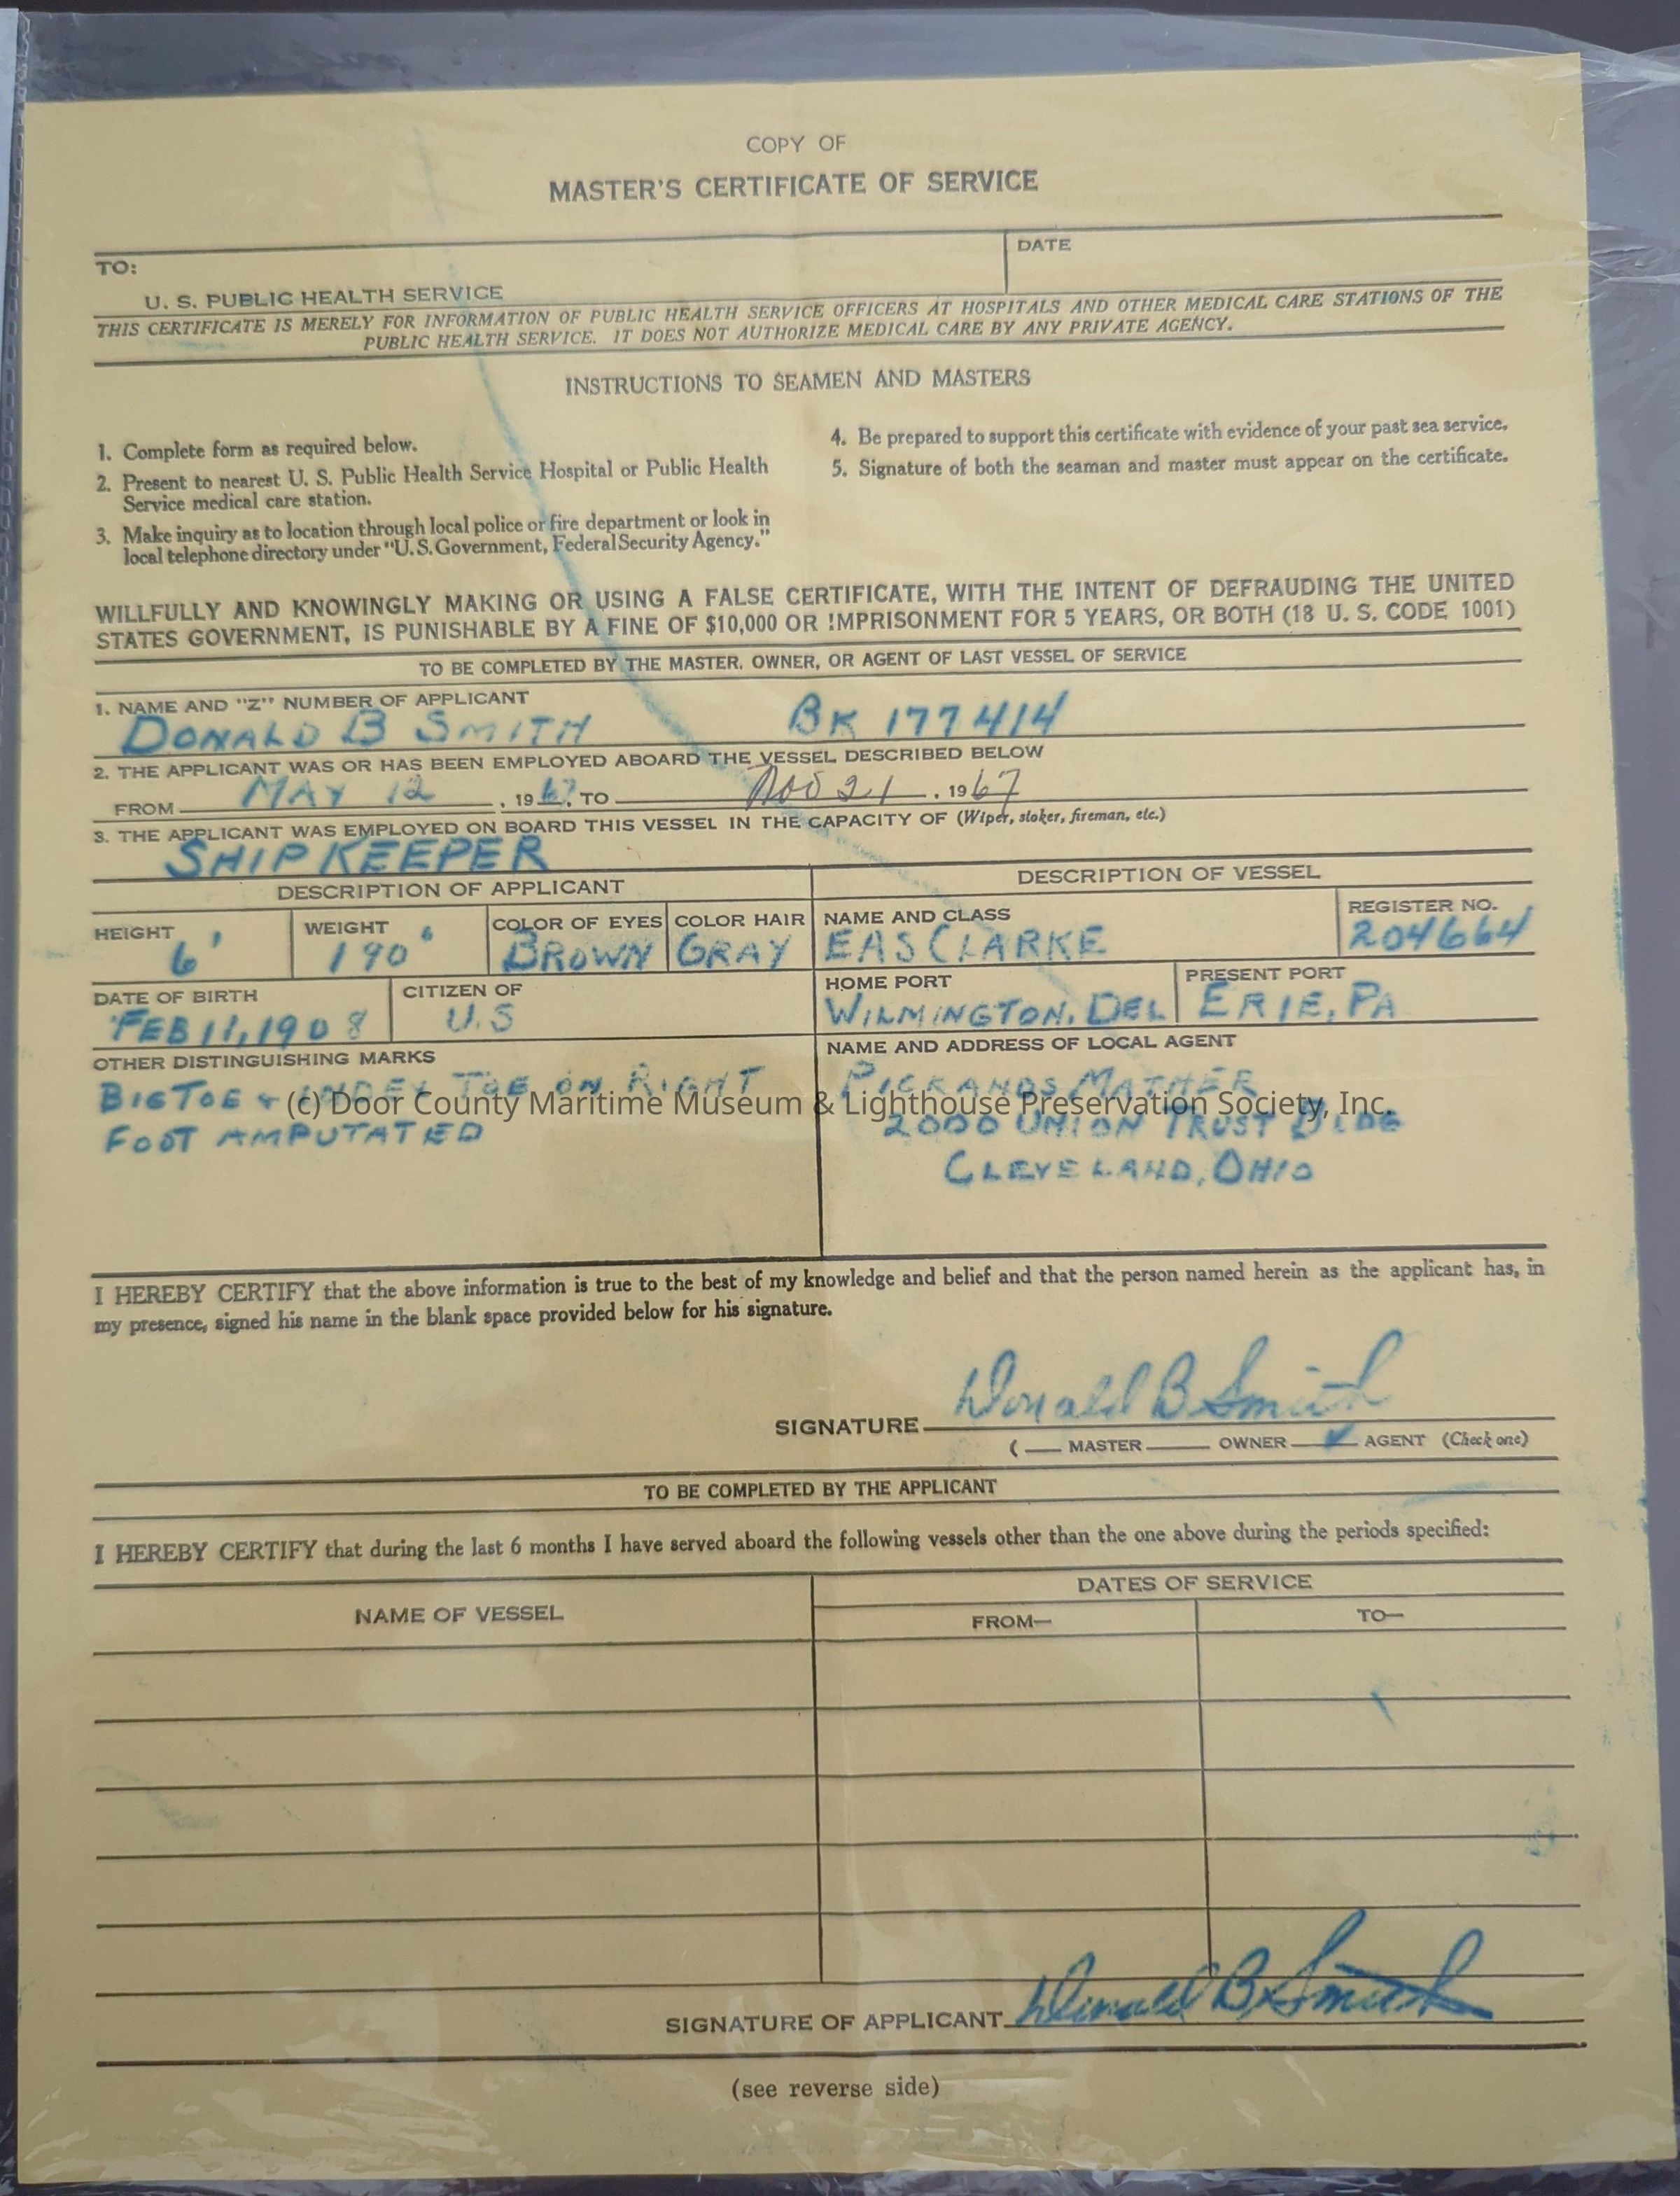 COPY OF
MASTER'S CERTIFICATE OF SERVICE
TO:
U. S. PUBLIC HEALTH SERVICE
DATE
THIS CERTIFICATE IS MERELY FOR INFORMATION OF PUBLIC HEALTH SERVICE OFFICERS AT HOSPITALS AND OTHER MEDICAL CARE STATIONS OF THE
PUBLIC HEALTH SERVICE. IT DOES NOT AUTHORIZE MEDICAL CARE BY ANY PRIVATE AGENCY.
INSTRUCTIONS TO SEAMEN AND MASTERS
1. Complete form as required below.
2. Present to nearest U. S. Public Health Service Hospital or Public Health
Service medical care station.
3. Make inquiry as to location through local police or fire department or look in
local telephone directory under "U. S. Government, Federal Security Agency."
4. Be prepared to support this certificate with evidence of your past sea service.
5. Signature of both the seaman and master must appear on the certificate.
WILLFULLY AND KNOWINGLY MAKING OR USING A FALSE CERTIFICATE, WITH THE INTENT OF DEFRAUDING THE UNITED
STATES GOVERNMENT, IS PUNISHABLE BY A FINE OF $10,000 OR IMPRISONMENT FOR 5 YEARS, OR BOTH (18 U. S. CODE 1001)
TO BE COMPLETED BY THE MASTER, OWNER, OR AGENT OF LAST VESSEL OF SERVICE
1. NAME AND "Z" NUMBER OF APPLICANT
DONALD B SMITH BK 177414
2. THE APPLICANT WAS OR HAS BEEN EMPLOYED ABOARD THE VESSEL DESCRIBED BELOW
FROM MAY 12, 1967, TO Nov 21, 1967
3. THE APPLICANT WAS EMPLOYED ON BOARD THIS VESSEL IN THE CAPACITY OF (Wiper, stoker, fireman, etc.)
SHIPKEEPER
DESCRIPTION OF APPLICANT
DESCRIPTION OF VESSEL
HEIGHT
6'
WEIGHT
190
COLOR OF EYES
BROWN
COLOR HAIR
GRAY
NAME AND CLASS
EAS CLARKE
REGISTER NO.
204664
DATE OF BIRTH
FEB 11, 1908
CITIZEN OF
U.S
HOME PORT
WILMINGTON, DEL
PRESENT PORT
ERIE, PA
OTHER DISTINGUISHING MARKS
BIG TOE + INDEX TOE ON RIGHT
FOOT AMPUTATED
NAME AND ADDRESS OF LOCAL AGENT
PICKANDS MATHER
2000 UNION TRUST BLDG
CLEVELAND, OHIO
(c) Door County Maritime Museum & Lighthouse Preservation Society, Inc.
I HEREBY CERTIFY that the above information is true to the best of my knowledge and belief and that the person named herein as the applicant has, in
my presence, signed his name in the blank space provided below for his signature.
SIGNATURE Donald B Smith
( MASTER OWNER ✓ AGENT (Check one)
TO BE COMPLETED BY THE APPLICANT
I HEREBY CERTIFY that during the last 6 months I have served aboard the following vessels other than the one above during the periods specified:
NAME OF VESSEL
DATES OF SERVICE
FROM—
TO—
SIGNATURE OF APPLICANT Donald B Smith
(see reverse side)